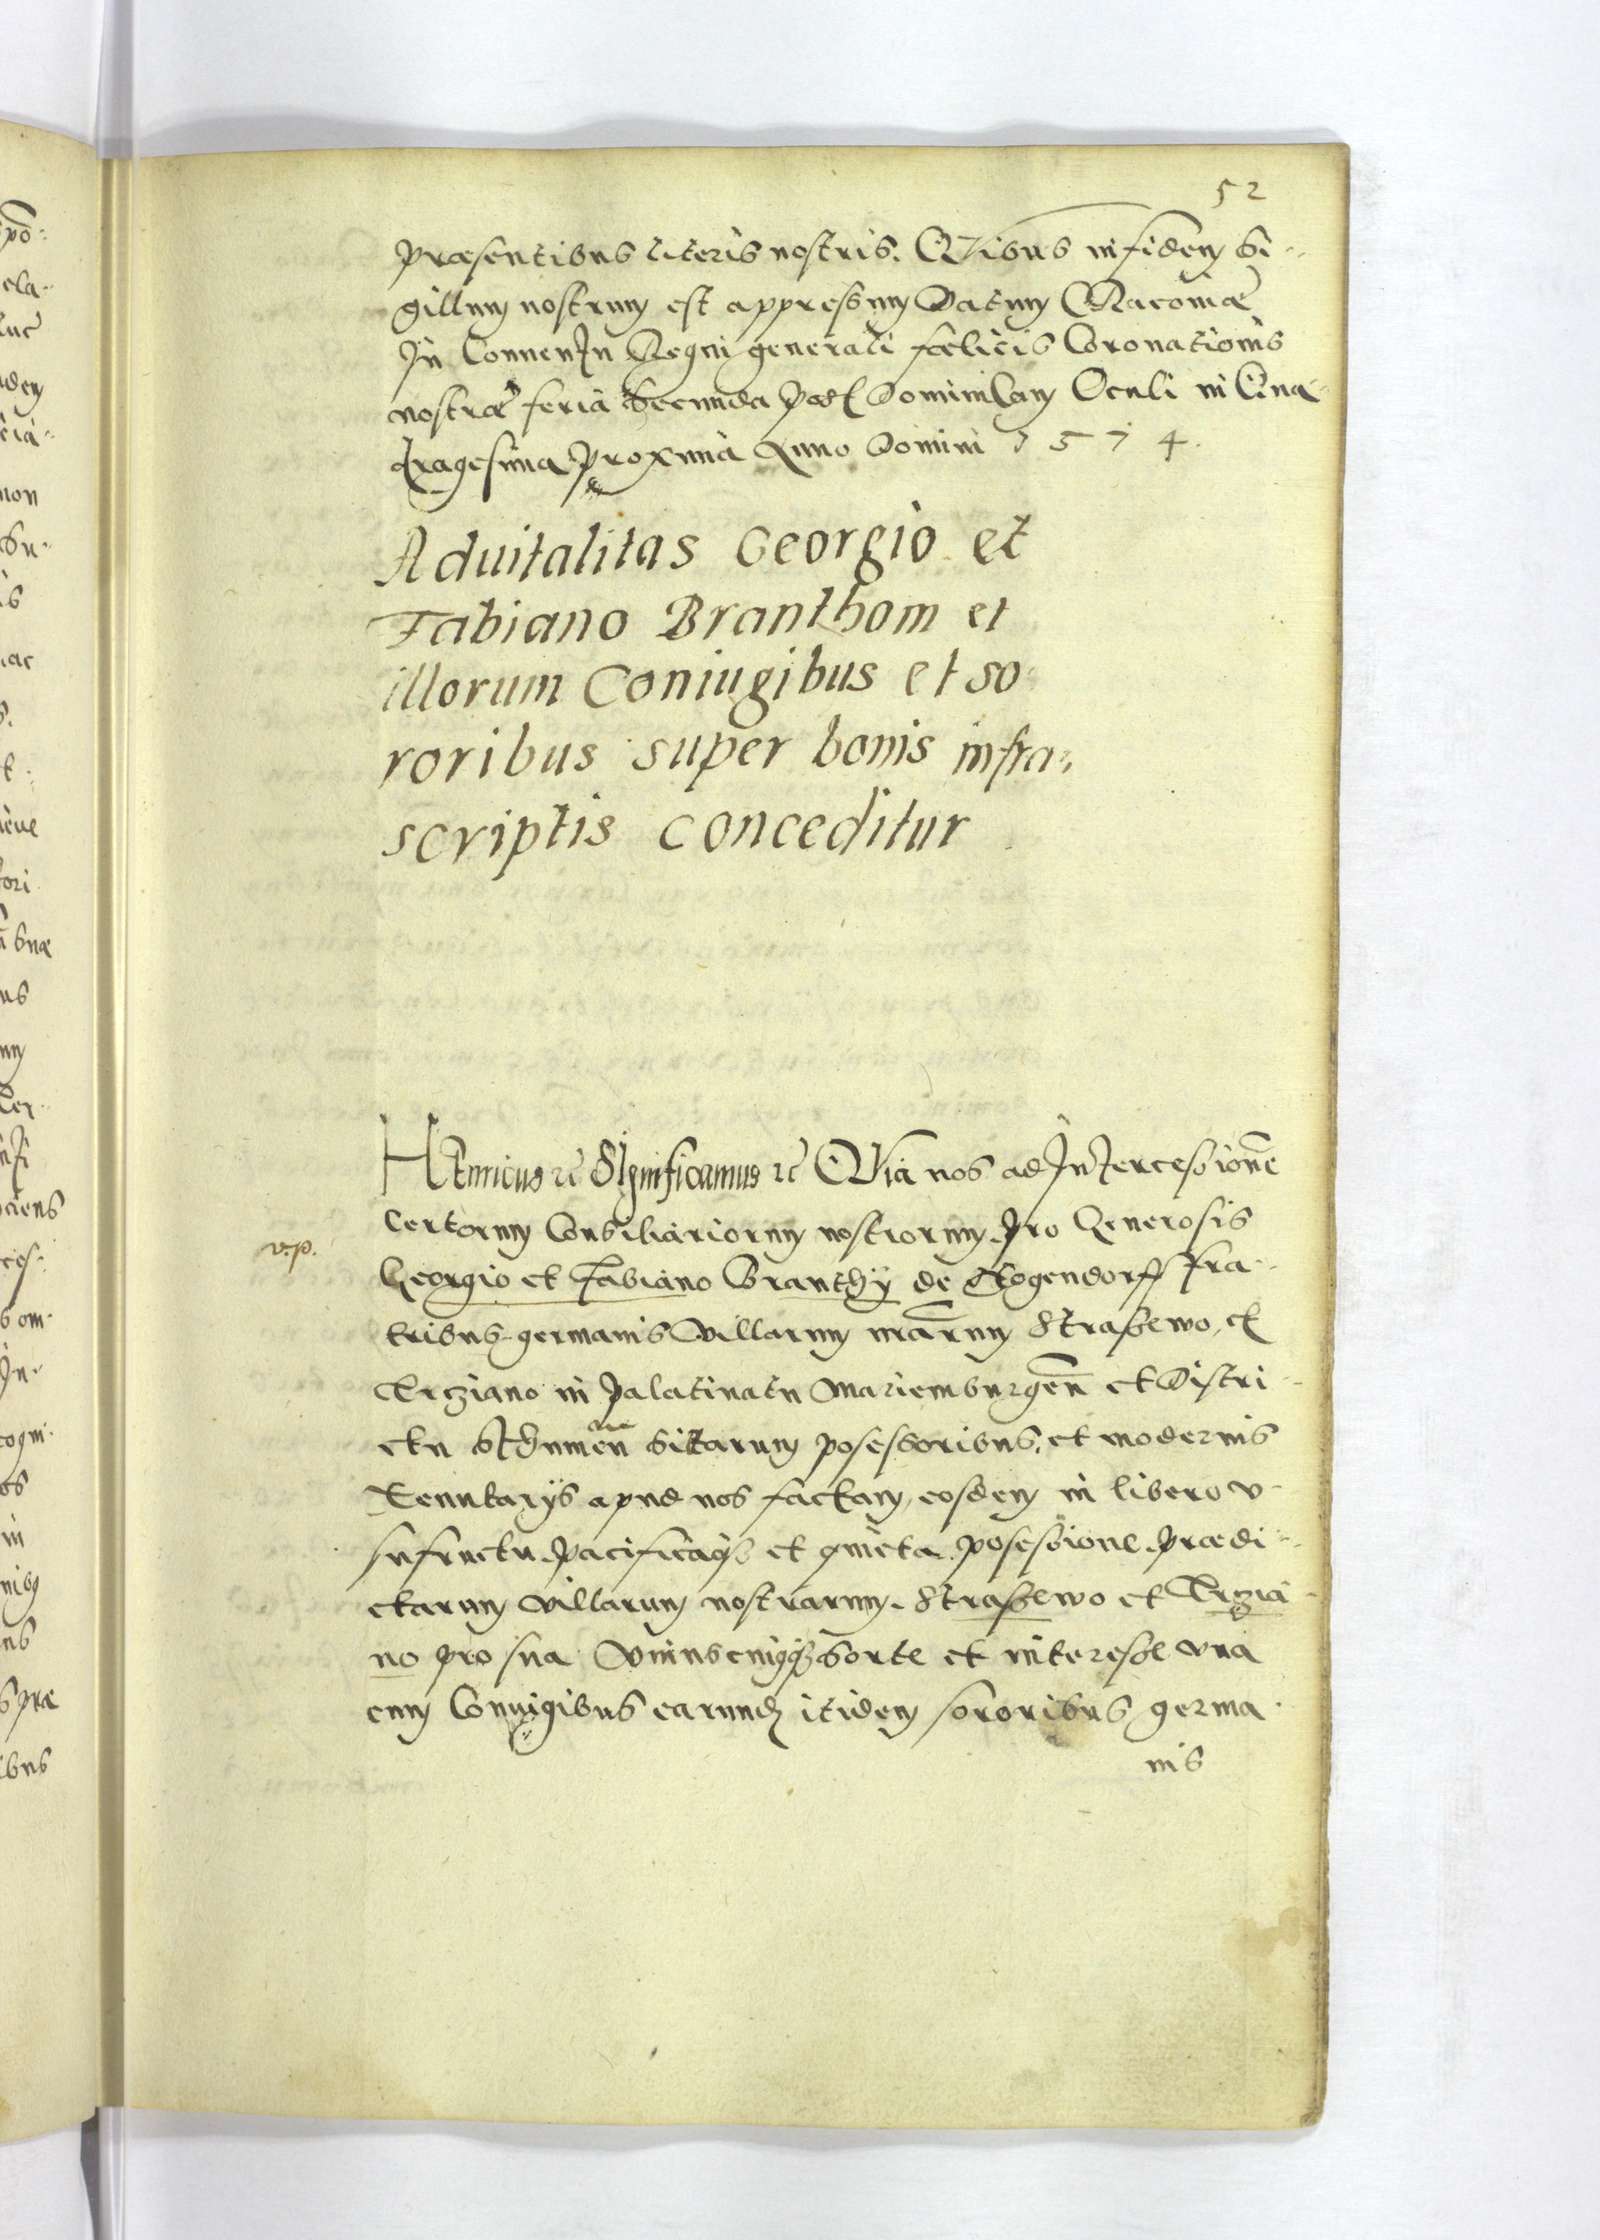 52
præsentibus literis nostris. QVibus in fidem Si-
gillum nostrum est appressum Datum Cracoviæ
In Conuentu Regni generali fœlicis Coronationis
nostræ feria Secunda post Dominicam Oculi in Qua-
dragesima proxima Anno Domini 1574.
Aduitalitas Georgio et
Fabiano Branthom et
illorum Coniugibus et so-
roribus super bonis infra-
scriptis conceditur
HEnricus etc SIgnificamus etc QVia nos ad Intercessionē
Certorum Consiliariorum nostrorum pro Generosis
v.p.
Georgio et Fabiano Branthÿ de Rogendorff fra-
tribus germanis Villarum nrārum Straszewo, et
Trcziano in Palatinatu Mariemburgen̄ et Distri-
ctu Sthumen̄ Sitarum posessoribus, et modernis
Tenutarÿs apud nos factam, eosdem in libero v-
sufructu pacificaq3 et quieta posessione prædi-
ctarum Villarum nostrarum Straszewo et Trczia-
no pro sua Vniuscuiusq3 sorte et interesse vna
cum Coniugibus earund itidem sororibus germa-
nis